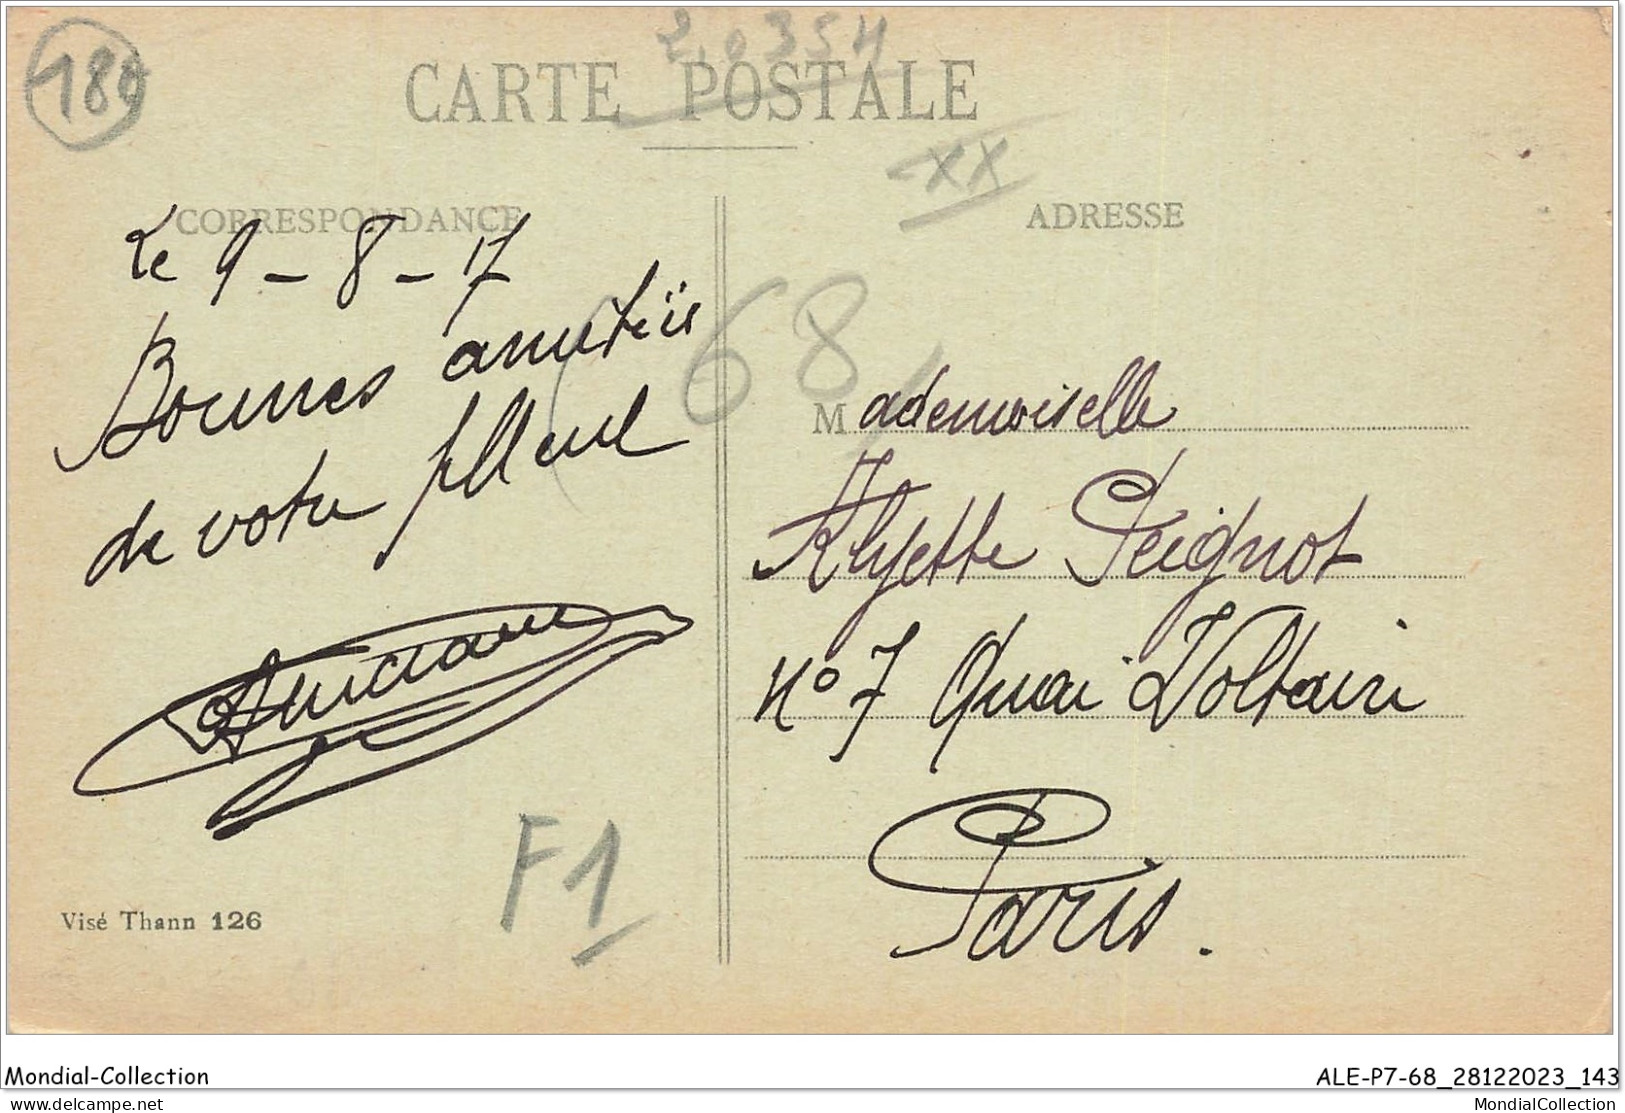 189
2.0354
CARTE POSTALE
XX
CORRESPONDANCE
ADRESSE
Le 9 - 8 - 17
Bonnes amitiés
de votre filleul
68
Mademoiselle
Peignot
N° 7 Quai Voltaire
Paris.
F1
Visé Thann 126
Mondial-Collection
ALE-P7-68_28122023_143
delcampe.net
MondialCollection